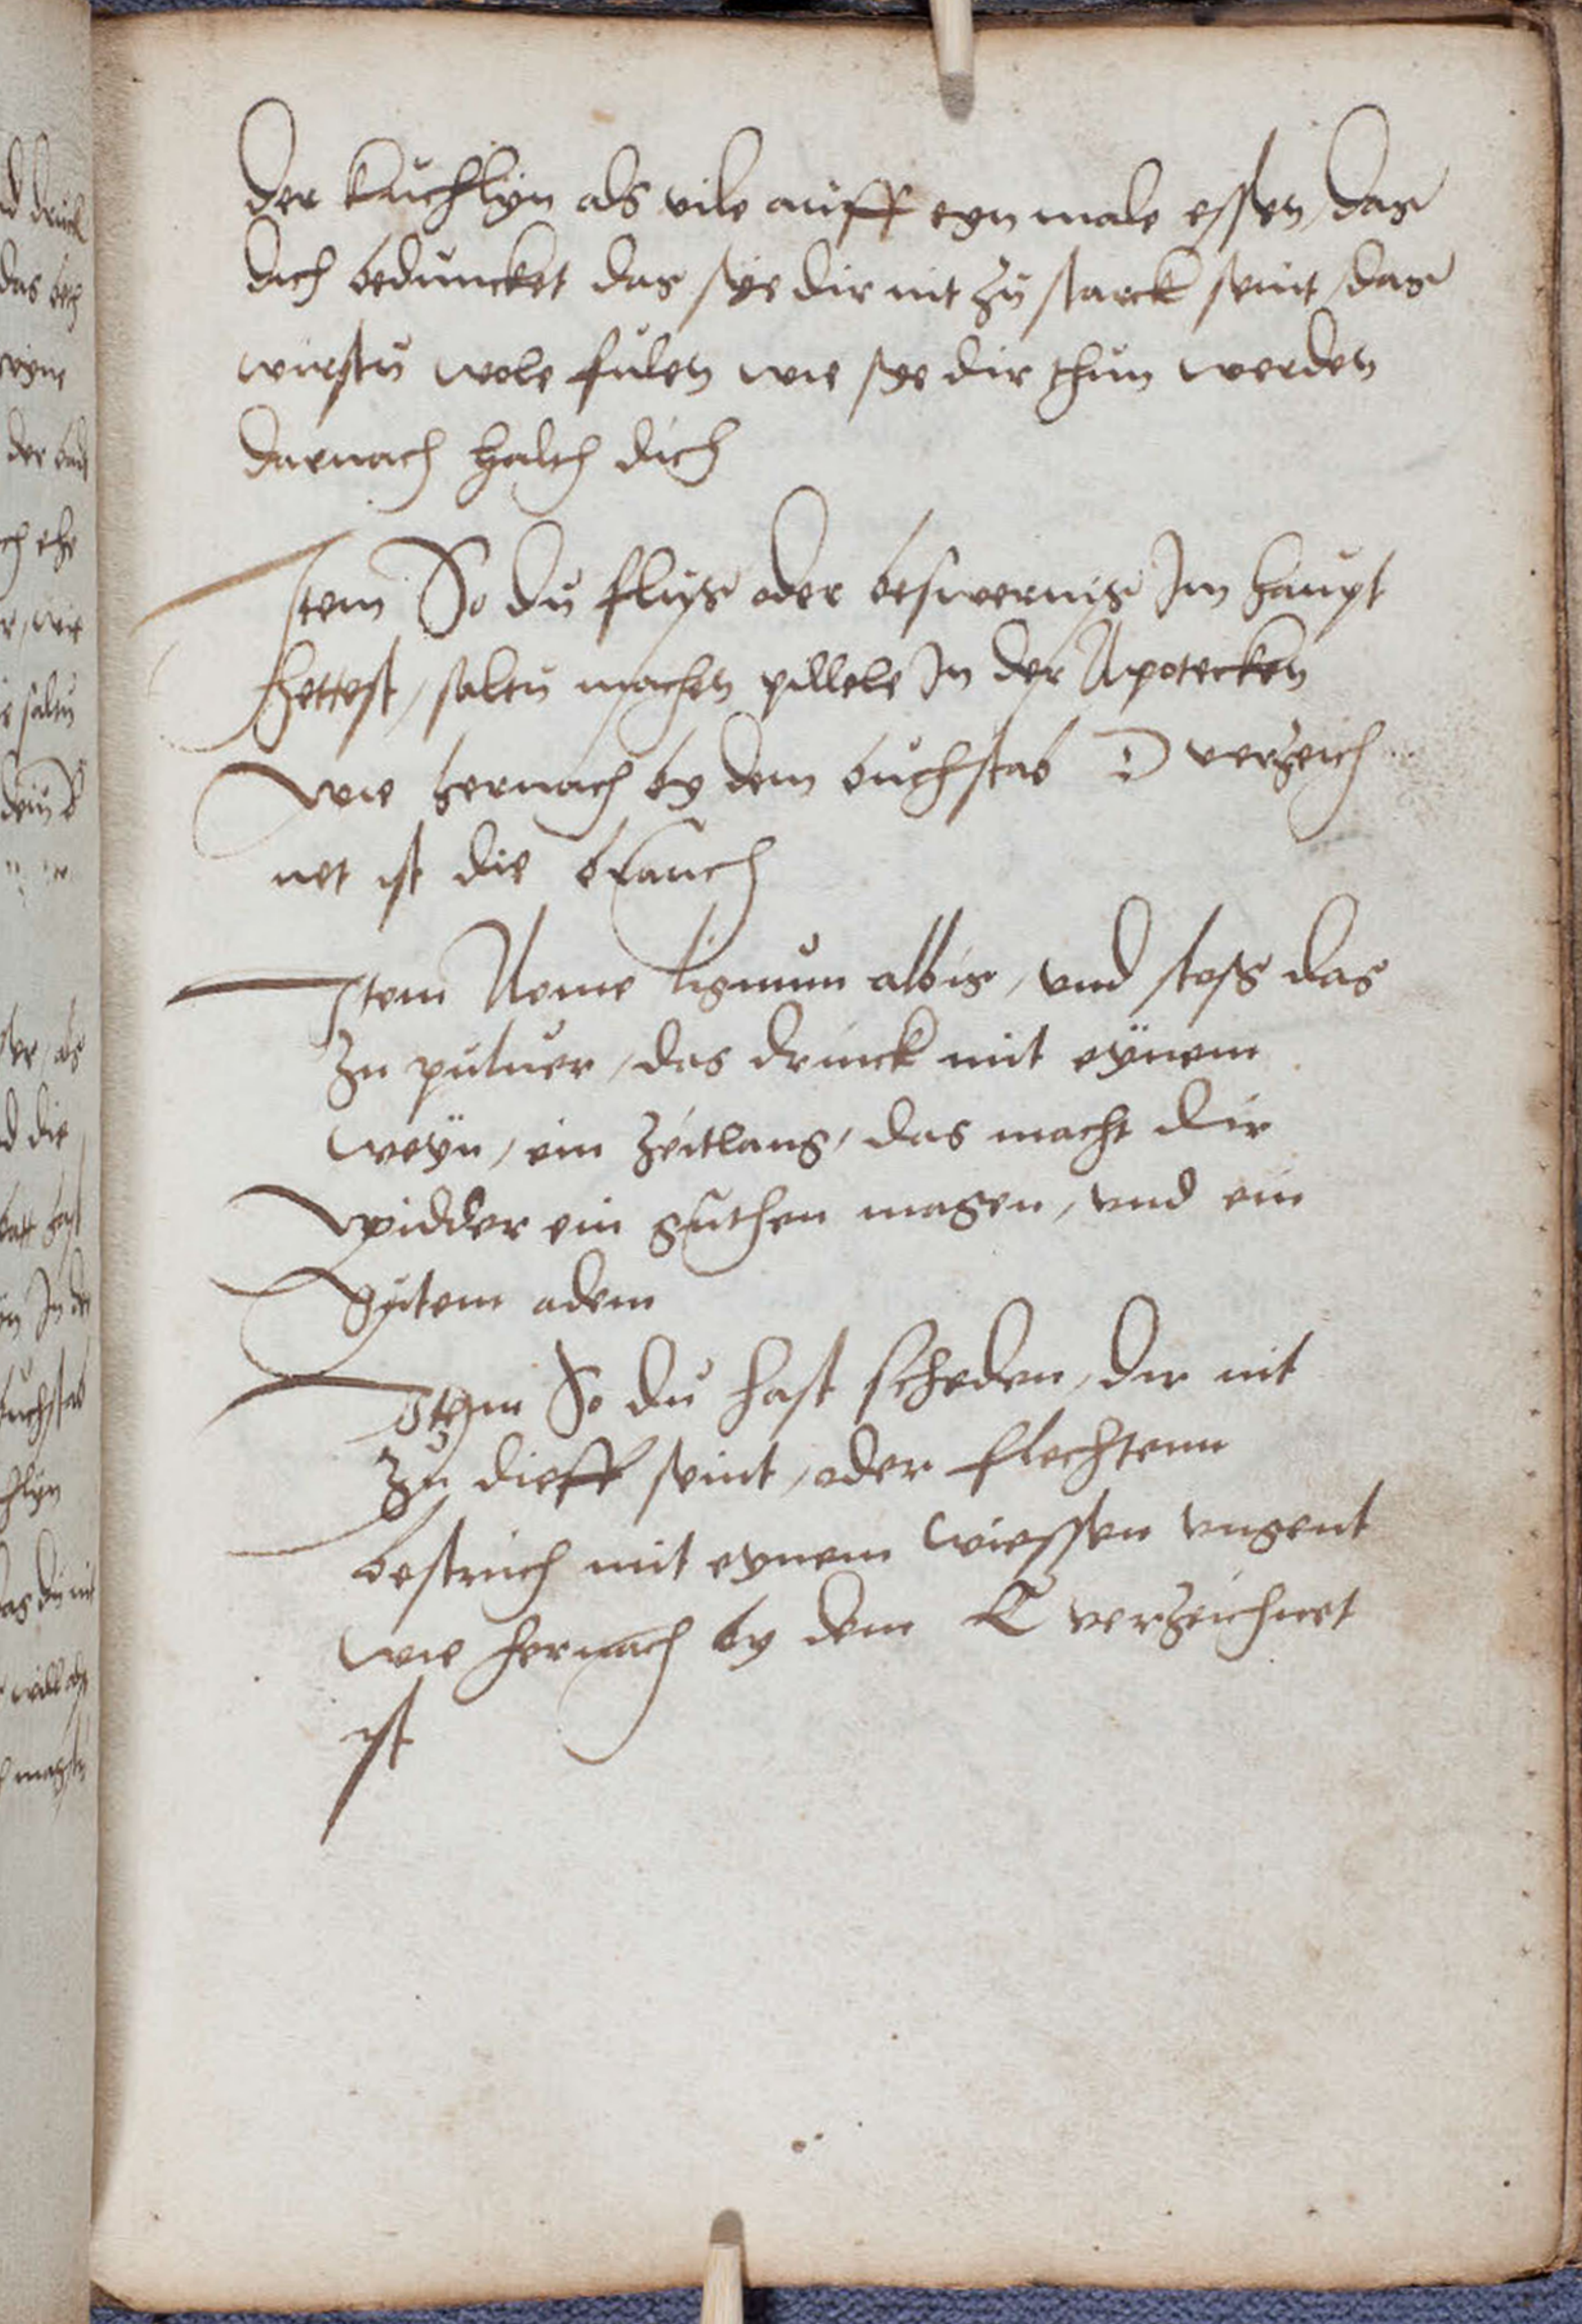 der kuchlyn als vile auff eyn male essen, das
dich beduncket das sye dir nit zu starck seint, das
wirstu wole fulen wie sye dir thun werden
darnach halth dich
Item So du fluss oder beswernis Im haupt
hettest, saltu machen pillele In der Apotecken
wie hernach by dem buchstab D verzeich
net ist die brauch
Item Neme lignum albis, vnd stoss das
zu puluer, das drinck mit eynem
weyn, ein zeitlang, das macht dir
widder ein guthen magen, vnd ein
gutem adem
Ithem So du hast scheden, der nit
zu dieff seint, oder flechtenn
bestrich mit eynem wiessen vngent
wie hernach by dem E verzeichnet
ist